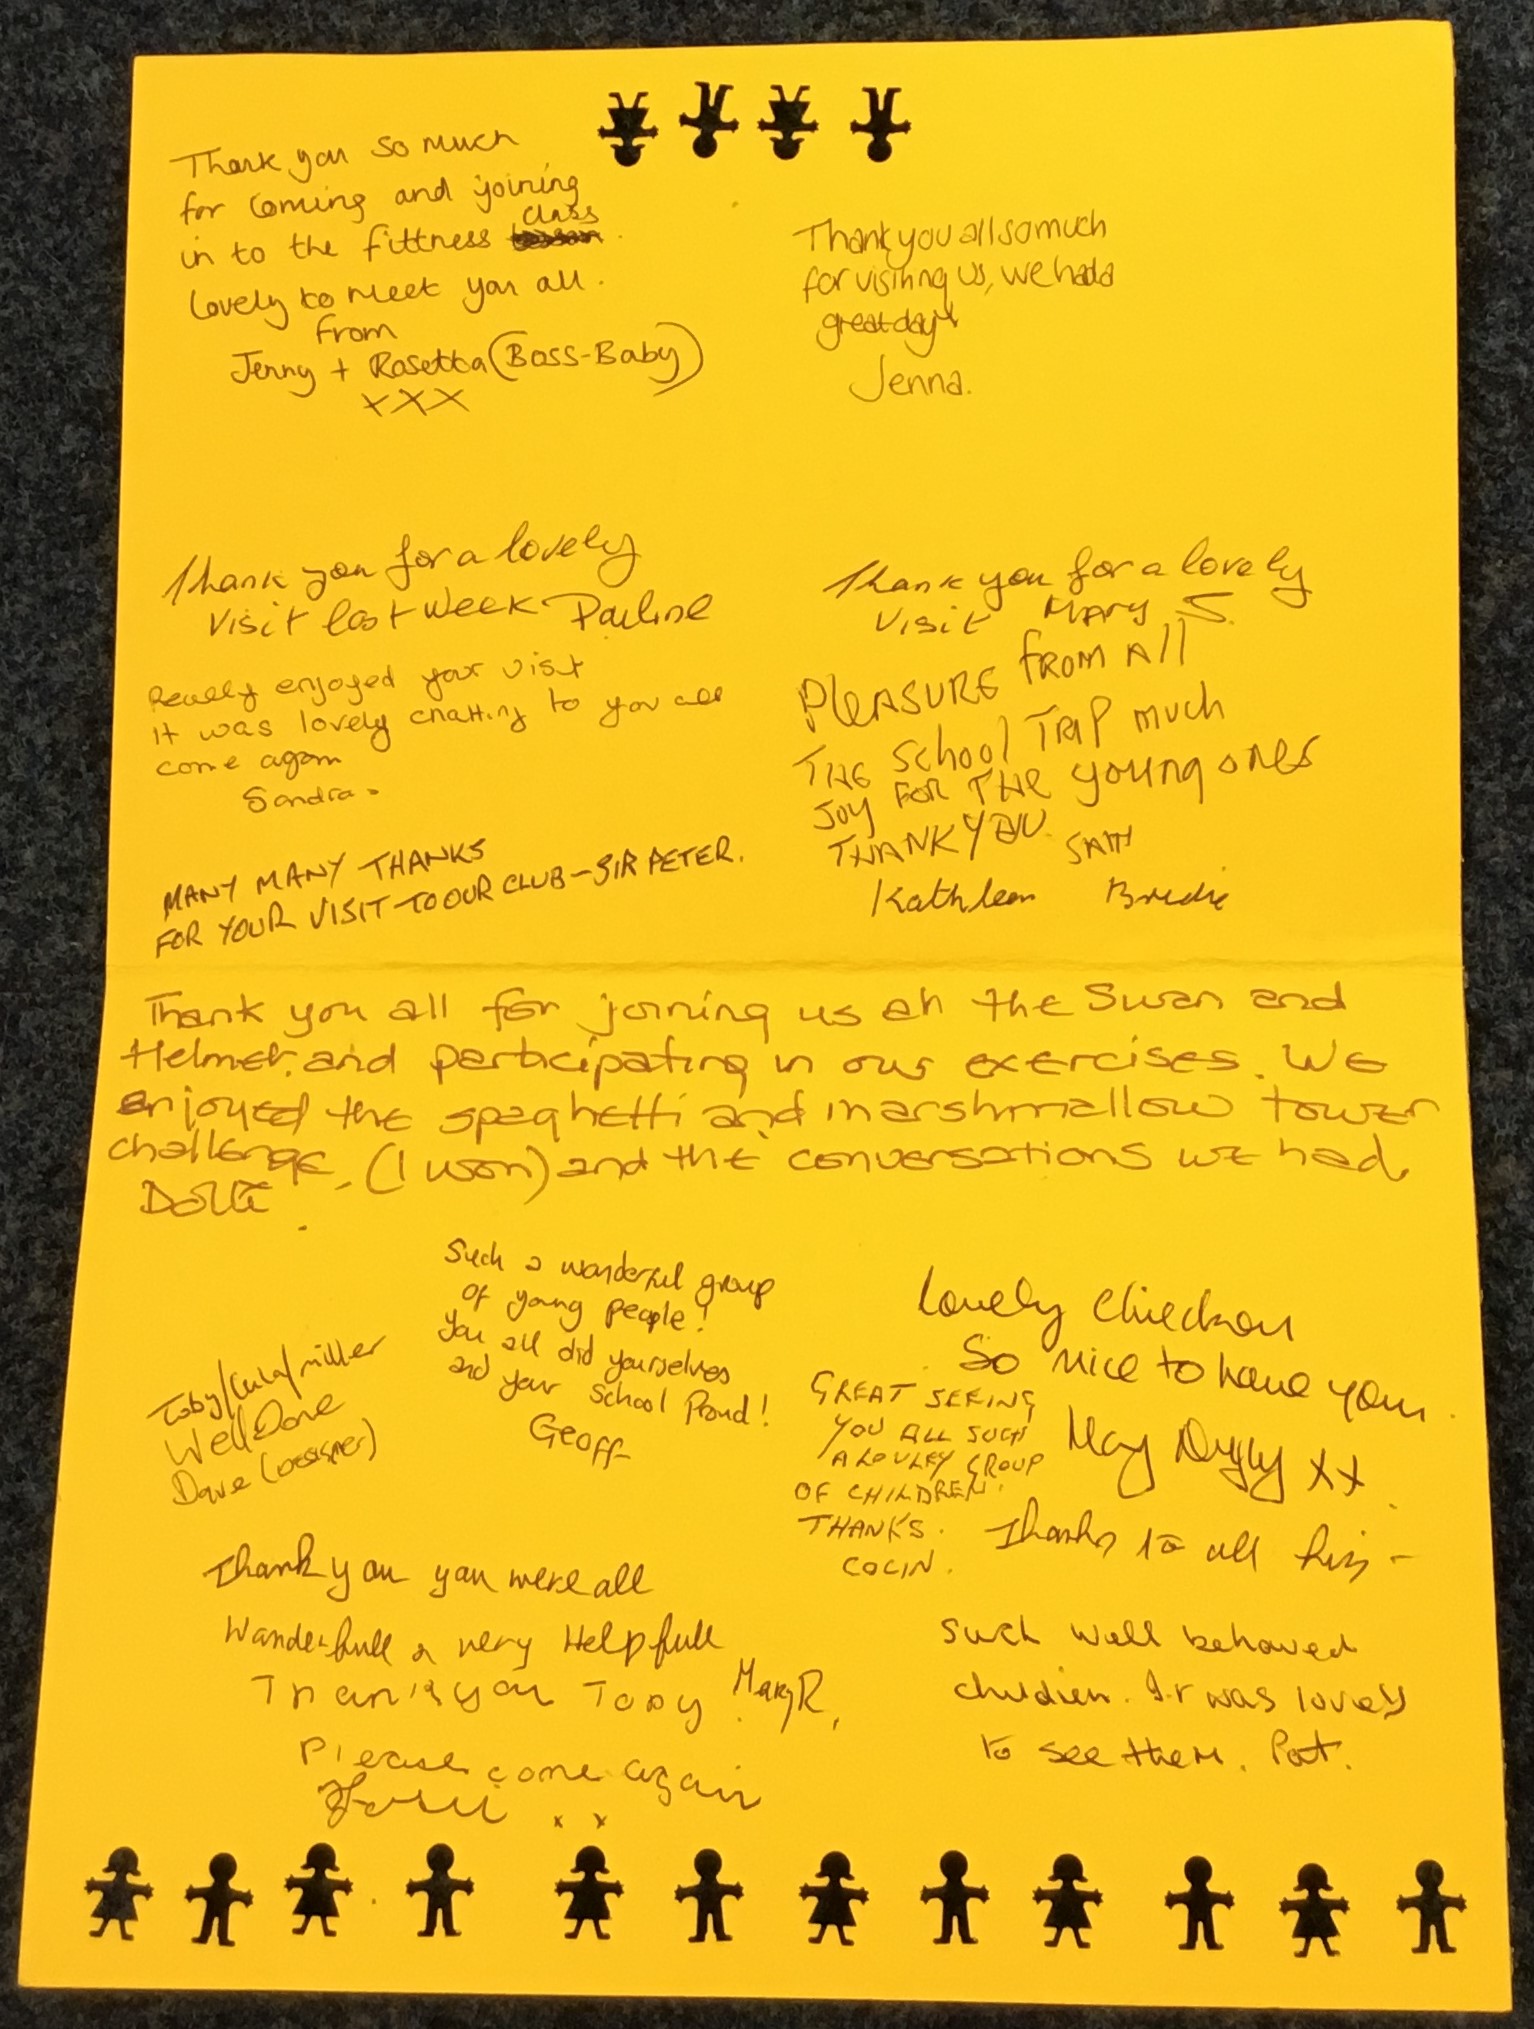 Thank you so much
for coming and joining
in to the fittness class
Lovely to meet you all.
from
Jenny + Rosetta (Boss-Baby)
xxx
Thank you all so much
for visiting us, we had a
great day
Jenna.
Thank you for a lovely
visit last week Pauline
Really enjoyed your visit
It was lovely chatting to you all
come again
Sandra.
MANY MANY THANKS
FOR YOUR VISIT TO OUR CLUB - SIR PETER.
Thank you for a lovely
visit Mary S.
PLEASURE FROM All
THE School TRIP much
JOY FOR THE young ones
THANK YOU
Kathleen Bridie
Thank you all for joining us at the Swan and
Helmet, and participating in our exercises. We
enjoyed the spaghetti and marshmallow tower
challenge. (I won) and the conversations we had.
Such a wonderful group
of young people!
You all did yourselves
and your school Proud!
Geoff
Toby/Lula/miller
Well Done
Dave (DESIGNER)
Lovely Children
So nice to have you
May xx
GREAT SEEING
YOU ALL SUCH
A LOVLEY GROUP
OF CHILDREN.
THANKS.
COLIN.
Thanks to all
Thank you you were all
Wonderfull & very Helpfull
Mary R,
Thank you Toby
Please come again
x x
Such well behaved
children. It was lovely
to see them. Pat.